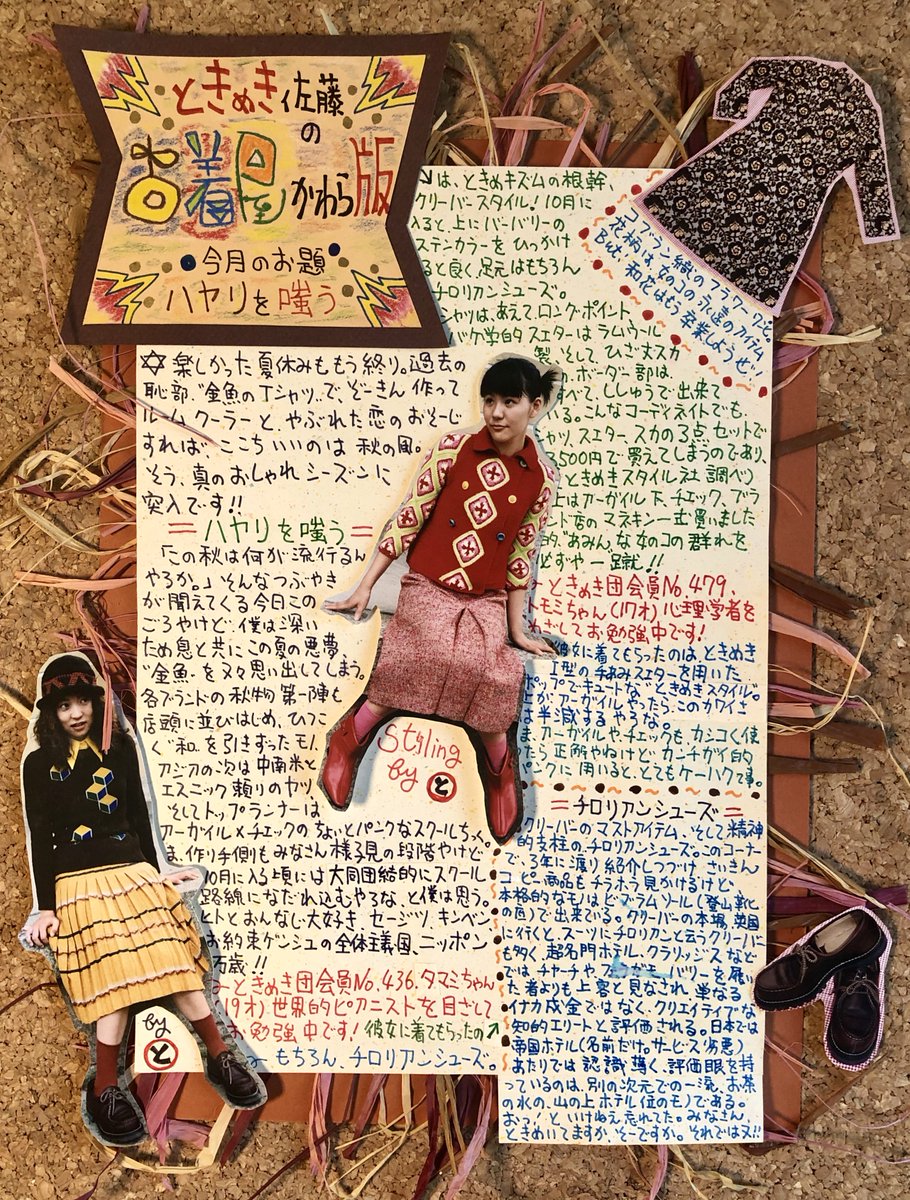 ときめき佐藤
の
古着屋
かわら版
•今月のお題•
ハヤリを嗤う
✡楽しかった夏休みももう終り。過去の
恥部、"金魚のTシャツ"でぞーきん作って
ルームクーラーと、やぶれた恋のおそーじ
すれば、ここちいいのは秋の風。
そう、真のおしゃれシーズンに
突入です!!
=ハヤリを嗤う=
「この秋は何が流行るん
やろか。」そんなつぶやき
が聞えてくる今日この
ごろやけど、僕は深い
ため息と共にこの夏の悪夢
"金魚"を又々思い出してしまう。
各ブランドの秋物第一陣も
店頭に並びはじめ、ひつこ
く"和"を引きずったモノ、
アジアの次は中南米と
エスニック頼りのヤツ、
そしてトップランナーは
アーガイル×チェックのちょいとパンクなスクールちっく。
ま、作り手側もみなさん様子見の段階やけど
10月に入る頃には大同団結的にスクール
路線になだれ込むやろな、と僕は思う。
ヒトとおんなじ大好き、セージツ、キンベン
お約束ゲンシュの全体主義国、ニッポン
万歳!!
ときめき団会員No.436.タマミちゃん
(19才)世界的ピアニストを目ざして
お勉強中です!彼女に着てもらったの↗
もちろん、チロリアンシューズ。
↘は、ときめキズムの根幹、
クリーバースタイル!10月に
入ると、上にバーバリーの
ステンカラーをひっかけ
ると良く、足元はもちろん
チロリアンシューズ。
シャツは、あえて、ロング・ポイント
バケ学的スエターはラムウール
製、そして ひざ丈スカ
の、ボーダー部は、
すべて、ししゅうで出来て
いる。こんなコーディネイトでも、
シャツ、スエター、スカの3点セットで
3500円で買えてしまうのであり、
ときめきスタイル社調べ)
上はアーガイル、下、チェック、ブラ
ンド店のマネキン一式買いました
的、"あみん"な女のコの群れを
一蹴!!
ときめき団会員No.479、
トモミちゃん(17才)心理学者を
めざしてお勉強中です!
彼女に着てもらったのは、ときめき
I型の手あみスエターを用いた
ポップでキュートなときめきスタイル。
上がアーガイルやったら、このカワイさ
は半減するやろな。
ま、アーガイルやチェックも、カシコく使
たら正解やねけど、カンチガイ的
パンクに用いると、とてもケーハクで
Styling
by
と
by
と
コブラン織のフラワーワンピ。
花柄は女のコの永遠のアイテム
But、和花はもう卒業しようぜ!
=チロリアンシューズ=
クリーバーのマストアイテム、そして精神
的支柱の、チロリアンシューズ。このコーナー
で、3年に渡り紹介しつづけ、さいきん
コピー商品もチラホラ見かけるけど、
本格的なモノはビブラムソール(登山靴
の底)で出来てる。クリーバーの本場、英国
に行くと、スーツにチロリアンと云うクリーバー
も多く、超名門ホテル、クラリッジスなど
では、チャーチや、バーバリーを履い
た者よりも上客と見なされ、単なる
イナカ成金ではなく、クリエイティブな
知的エリートと評価される。日本では
帝国ホテル(名前だけ。サービス劣悪)
あたりでは認識薄く、評価眼を持
っているのは、別の次元での一流、お茶
の水の、山の上ホテル位のモノである。
おっ!といけねえ忘れてた。みなさん、
ときめいてますか、そーですか。それでは又!!